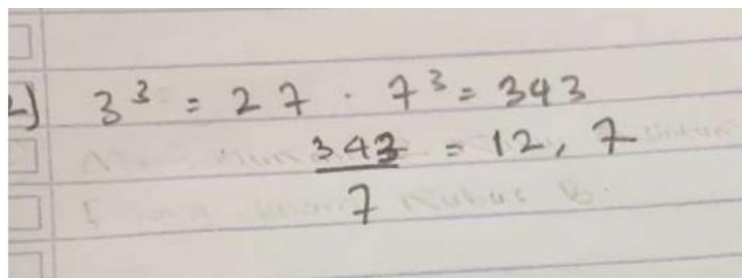 2) 3³ = 27 . 7³ = 343
343 = 12,7
7